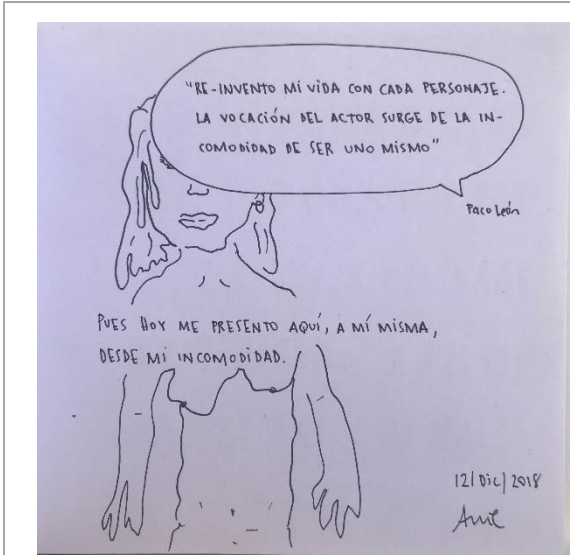 "RE-INVENTO MI VIDA CON CADA PERSONAJE.
LA VOCACIÓN DEL ACTOR SURGE DE LA IN-
COMODIDAD DE SER UNO MISMO"
Paco León
PUES HOY ME PRESENTO AQUÍ, A MÍ MISMA,
DESDE MI INCOMODIDAD.
12/DIC/2018